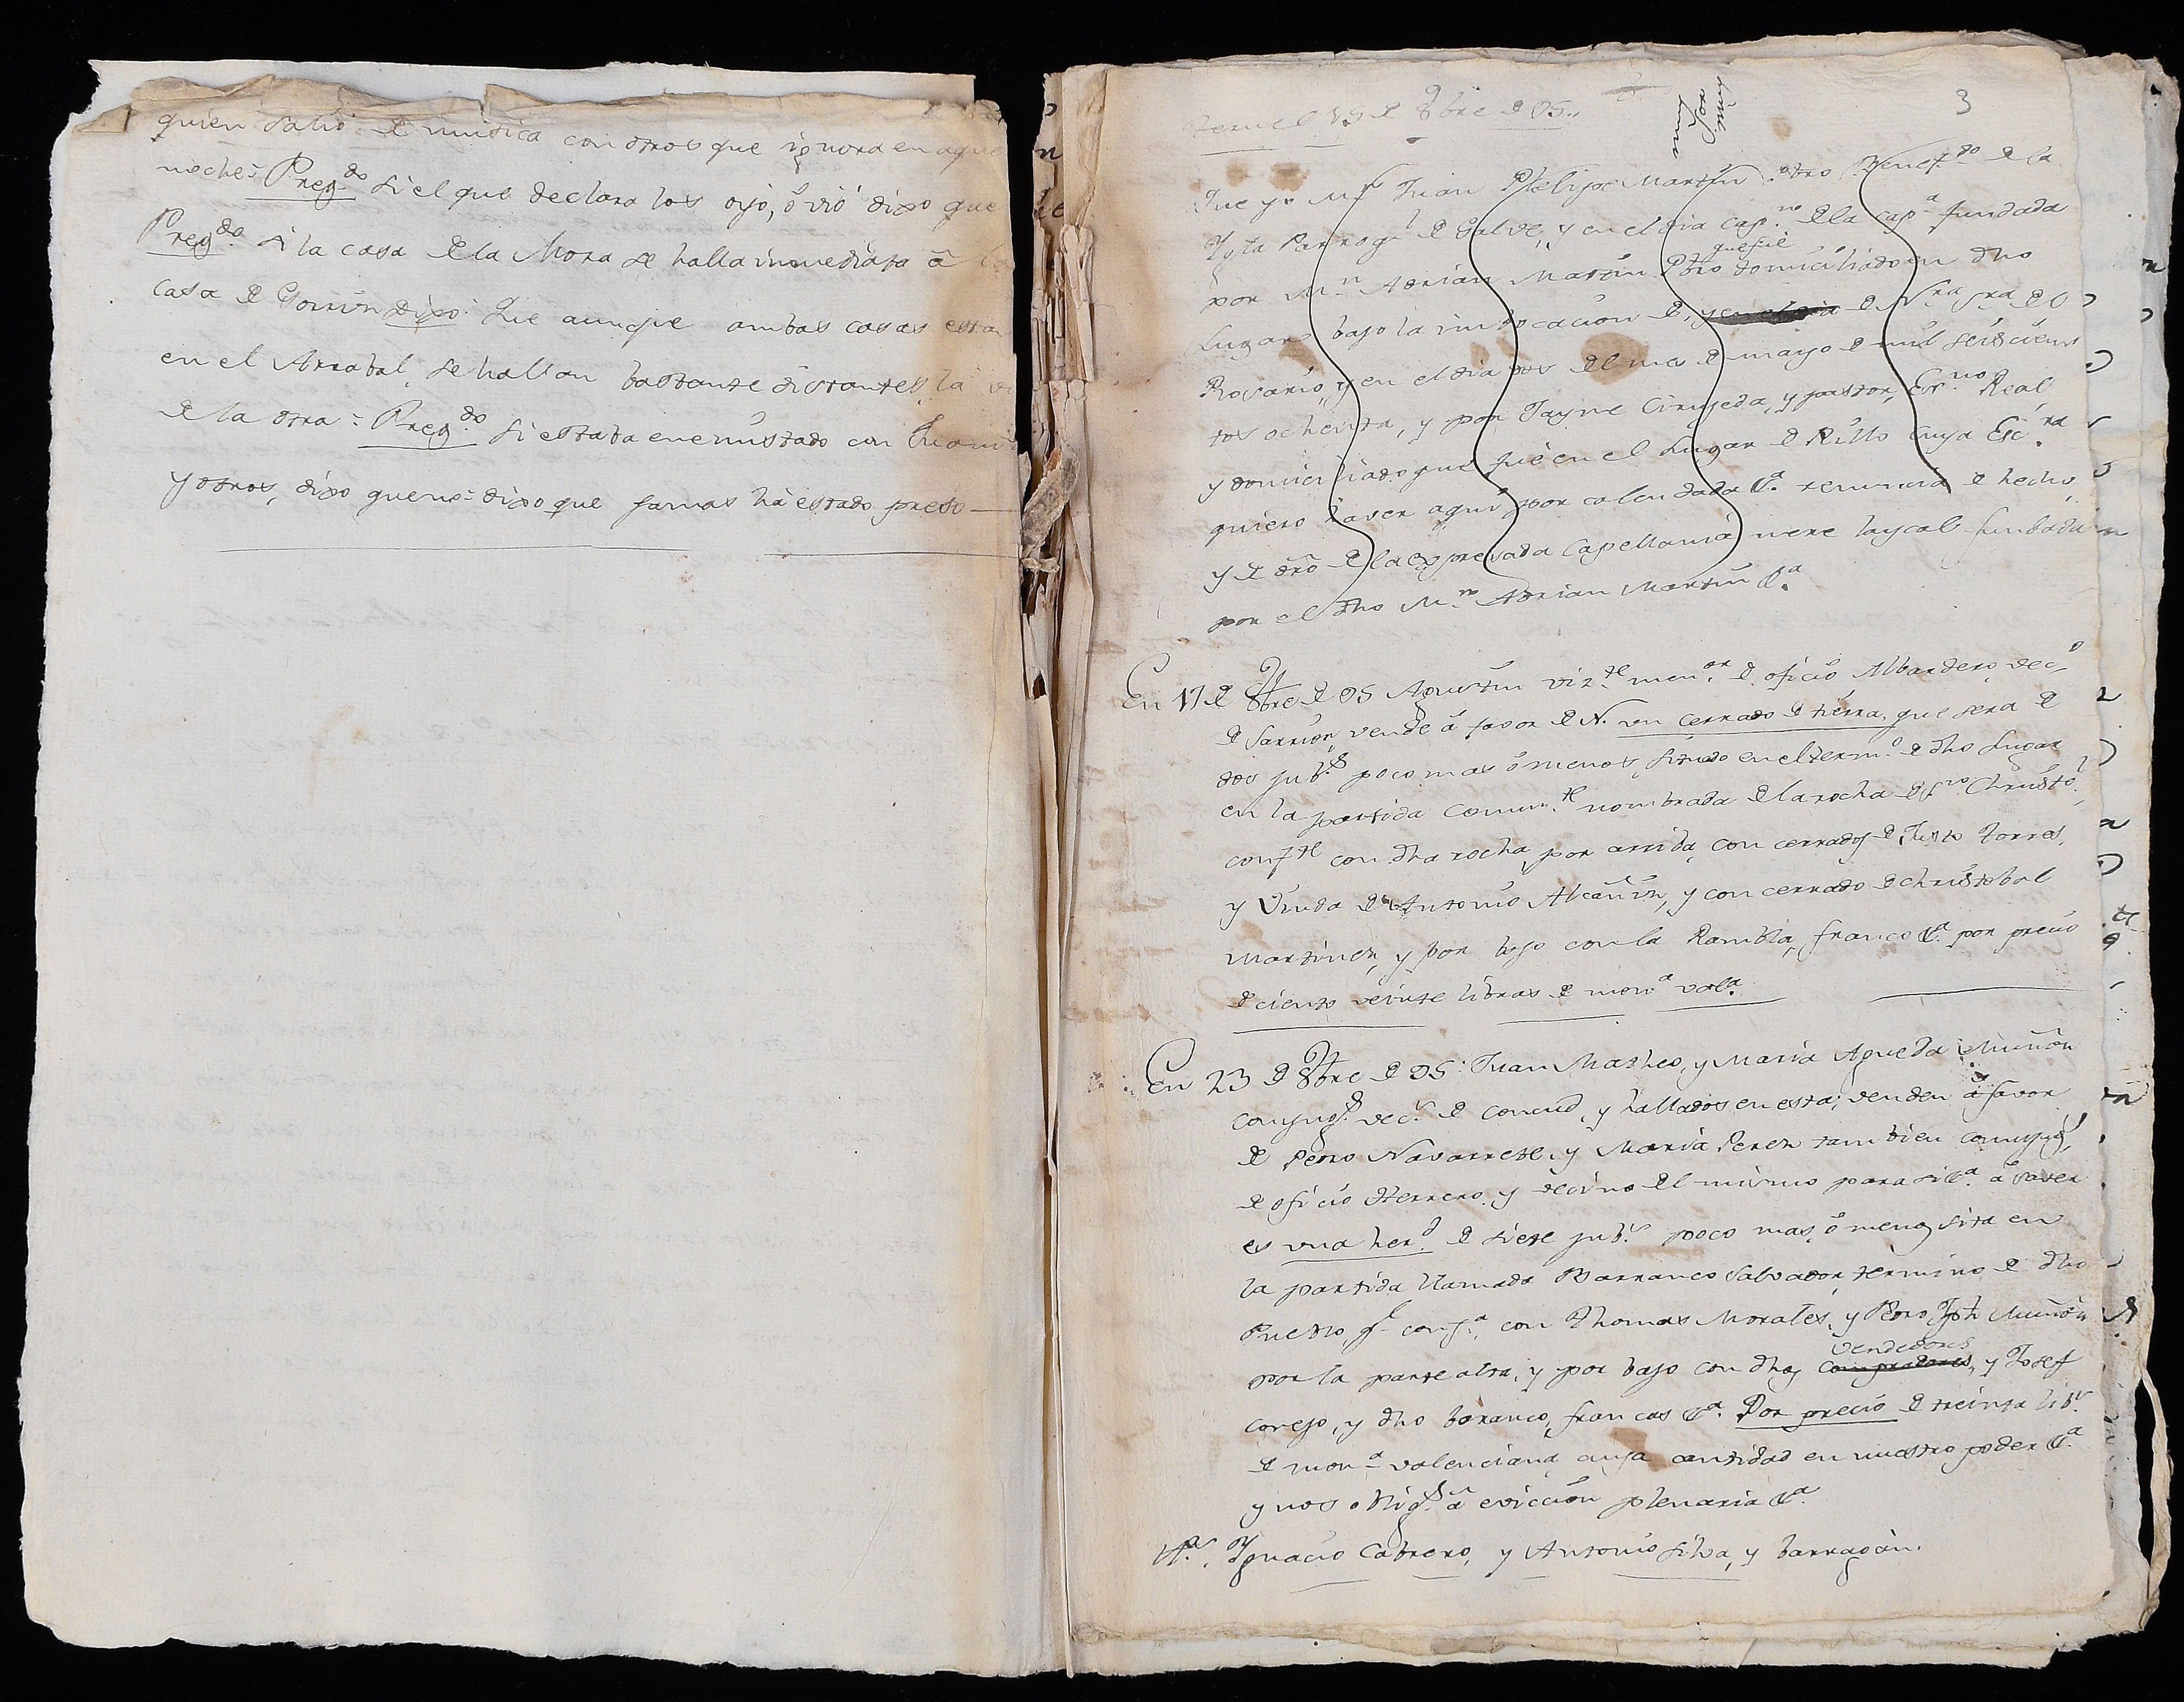 quien salió de musica con otros que ignora en aque
noche = Preg.do si el que declara los oyó, ô vió dixo que
Preg.do si la casa de la Mora se halla inmediata â la
casa de Gorriz dixo: Que aunque ambas casas estan
en el Arrabal, se hallan bastante distantes, la
de la otra = Preg.do si estaba enemistado con
y otros, dixo que no = dixo que jamas há estado preso
Teruel 15 de 8bre de 95..
3
muy
Jon
muy
Que yo Mn Juan Phelipe Martin Pbro Benef.do de la
Ygla Parroql de Galve, y en el dia cap.no de la cap.a fundada
por M.n Adrian Martin Pbro que fue domiciliado en dho
Lugar bajo la imbocacion de, y en el dia de N.ra Sra del
Rosario, y en el dia tres del mes de mayo de mil seiscien
tos ochenta, y por Jayme Cirujeda, y pastor, Esc.no Real
y domiciliado que fué en el Lugar de Rillo cuya Esc.ra
quiero haver aqui por calendada &.a renuncia de hecho,
y de dro de la expresada Capellania mere laycal fundada
por el dho M.n Adrian Martin &.a
En 17 de 8bre de 95 Agustin Viz.te men.or de oficio Albardero vec.o
de Sarrion, vende â favor de N. un cerrado de tierra, que sera de
dos jub.s poco mas ô menos, sitiado en el term.o de dho Lugar
en la partida comun.te nombrada de la rocha de S.to Christo,
conf.te con dha rocha por arriba, con cerrados de Justo Torres,
y Viuda de Antonio Alcañiz, y con cerrado de Christobal
Martinez, y por bajo con la Rambla, franco &.a por precio
de ciento veinte libras de mon.a val.a
En 23 de 8bre de 95: Juan Matheo, y Maria Agueda Muñoz
conyug.s vec.s de Concud, y hallados en esta; venden â favor
de Pedro Navarrete, y Maria Perez tambien conyug.s,
de oficio Herrero, y vecino del mismo para si &.a â saver
es una her.d de siete jub.s poco mas, ô menos sita en
la partida llamada Barranco Salvador, termino de dho
Pueblo, q.e conf.a con Thomas Morales, y Pedro Jph Muñoz
por la parte alta, y por bajo con dhos compradores vendedores, y Josef
conejo, y dho baranco, francas &.a Por precio de treinta lib.s
de mon.a valenciana cuya cantidad en nuestro poder &.a
y nos oblig.s â eviccion plenaria &.a
T.s Ygnacio Cabrero, y Antonio Silva, y barragán.